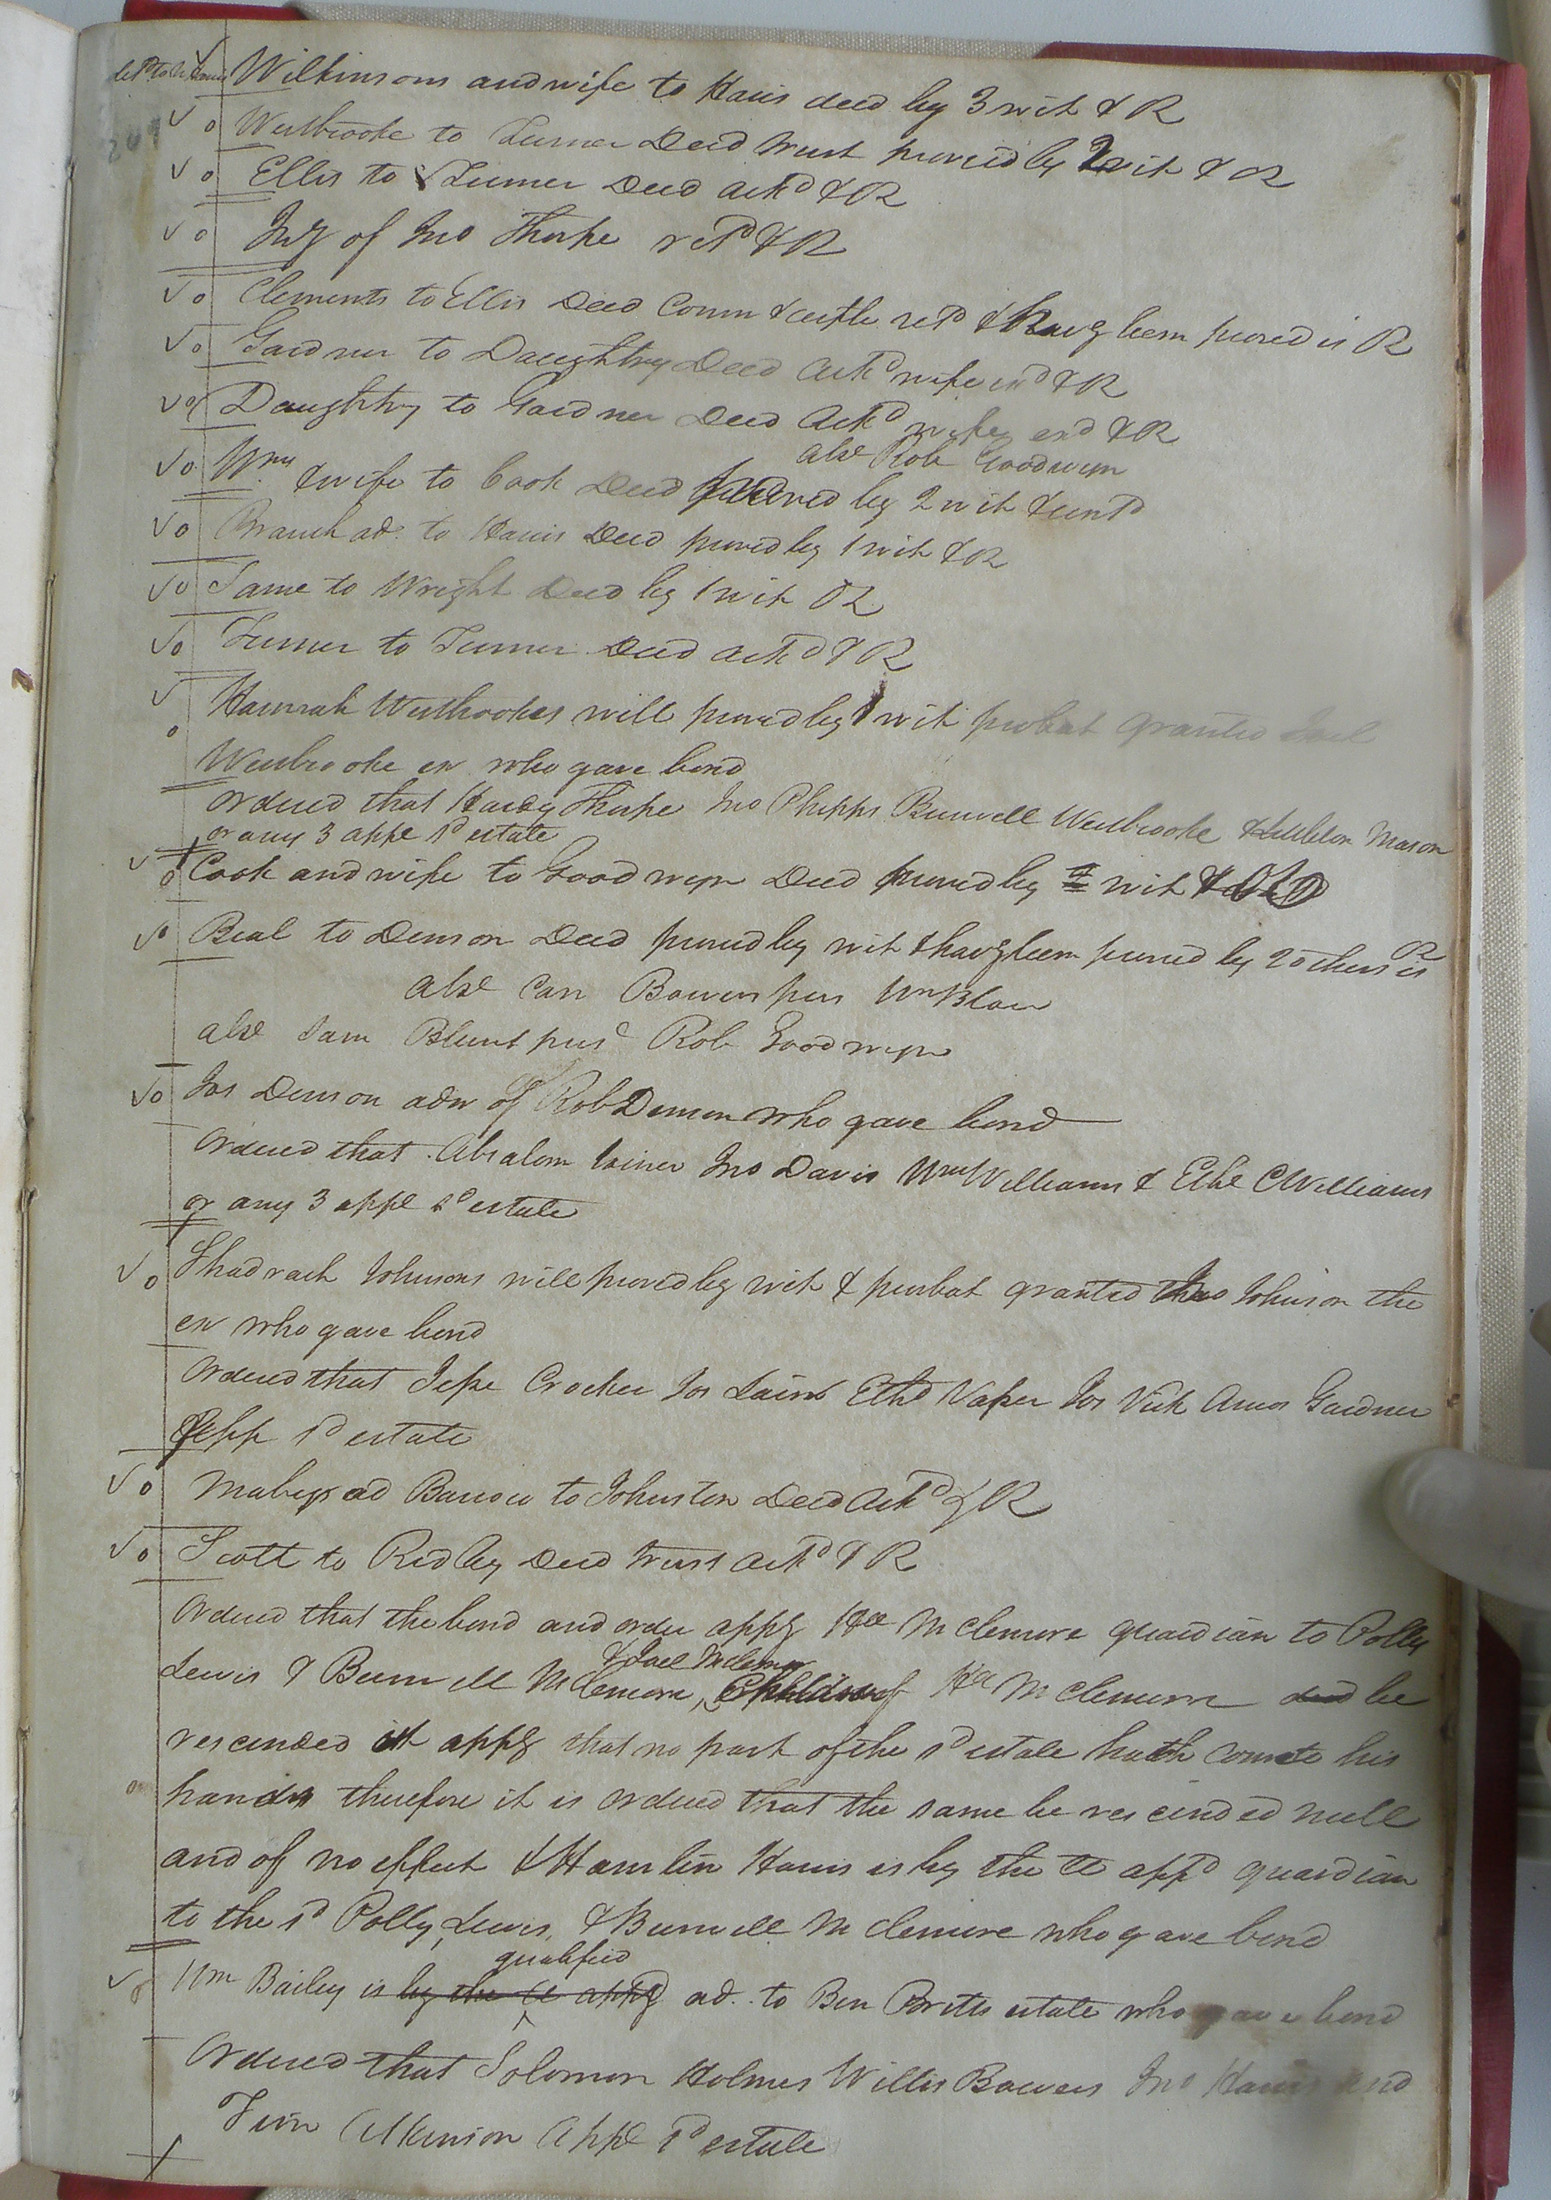 Wilkinsons and wife to Haris deed by 3 wit & R
Westbrooke to Turner Deed trust proved by 2 wit & R
Ellis to Turner Deed ackd & R
Invy of Jno Thorpe retd & R
Clements to Ellis Deed Comn & certfe retd & havg been proved is R
Gardner to Daughtry Deed ackd wife exd & R
Daughtry to Gardner Deed Ackd wife exd & R
also Rob Goodwyn
Wms & wife to Cook Deed proved by 2 wit & contd
Branch ad. to Haris Deed proved by 1 wit & R
Same to Wright Deed by 1 wit R
Turner to Turner Deed ackd & R
Hannah Westbrookes will proved by 1 wit probat granted Joel
Westbrooke ex who gave bond
Ordered that Hardy Thorpe Jno Phipps Burwell Westbrooke & Littleton Mason
or any 3 appe sd estate
Cook and wife to Goodwyn Deed proved by wit &
Beal to Denson Deed proved by wit & havg been proved by 2 others is R
also Carr Bowers pres Wm Blow
also Sam Blunt presd Rob Goodwyn
Jos Denson adm of Rob Denson who gave bond
Ordered that Absalom Joiner Jno Davis Wm Williams & Ethe C Williams
or any 3 appe sd estate
Shadrach Johnsons will proved by wit & probat granted Jno Johnson the
ex who gave bond
Ordered that Jesse Crocker Jos Lain Ethd Vaser Jos Vick Amos Gardner
appe sd estate
Mabry ad Barrow to Johnston Deed Ackd & R
Scott to Ridley Deed trust ackd & R
Ordered that the bond and order appg Hel McLemore guardian to Polly
& Joel McLemor
Lewis & Burwell McLemore, Children of Hel McLemore decd be
rescinded it appg that no part of the sd estate hath come to his
hands therefore it is ordered that the same be rescinded null
and of no effect & Hamlin Haris is by the Ct appd guardian
to the sd Polly, Lewis, & Burwell McLemore who gave bond
qualified
Wm Bailey is by the Ct appg ad. to Ben Britts estate who gave bond
Ordered that Solomon Holmes Willis Bowers Jno Haris and
Tim Atkinson Appe sd estate